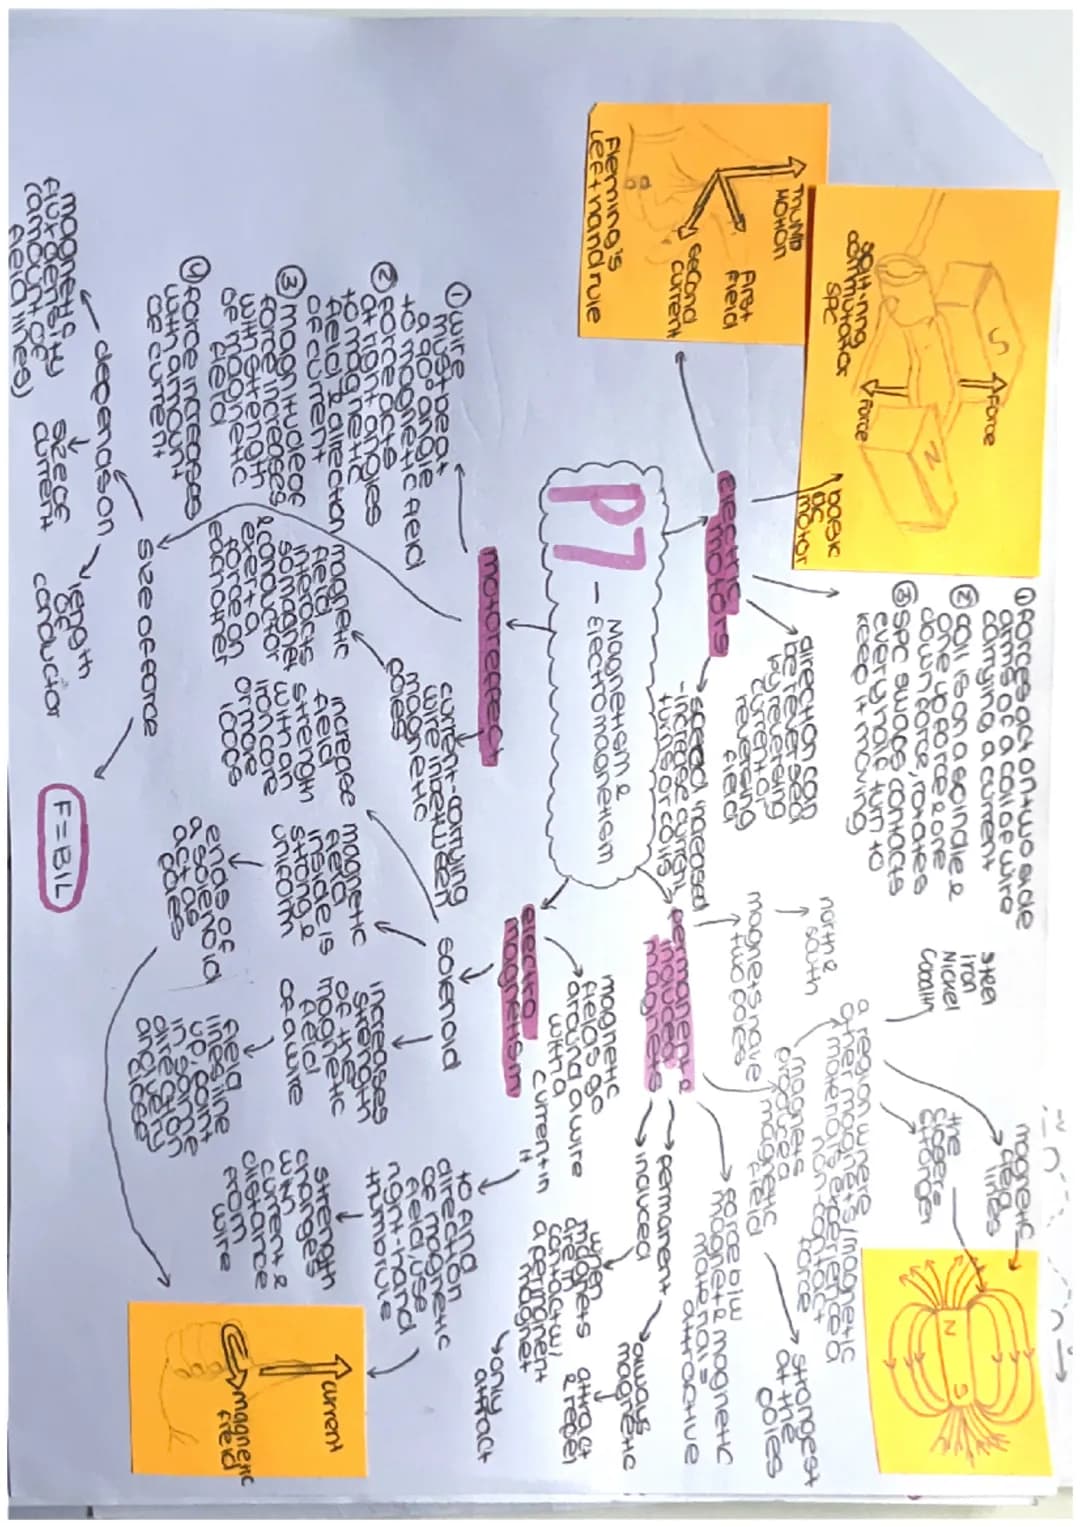 P7 - MAGNETISM &
ELECTROMAGNETISM
electric
motors
basic
DC
motor
split-ring
commutator
SRC
Force
Force
S
N
Fleming's
Left hand rule
ThuMb
MOtion
First
Field
seCond
Current
① Forces act on two side
arms of a coil of wire
carrying a current
② coil is on a spindle &
one up force & one
down force, rotates
③ SRC swaps contacts
every half turn to
keep it moving
direction can
be reversed
by reversing
current or
reversing
field
speed increased
- increase current,
turns or coils
permanent &
induced
magnets
magnets have
two poles
north &
south
magnets
produce a
magnetic
field
a region where
other magnets/magnetic
materials experience a
non-contact
force
steel
iron
Nickel
Cobalt
magnetic
field
lines
the
closer =
stronger
N
S
strongest
at the
poles
force b/w
magnet & magnetic
material =
attractive
permanent
always
magnetic
attract
& repel
induced
when
magnets
are in
contact w/
a permanent
magnet
only
attract
electro
magnetism
magnetic
fields go
around a wire
with a
current in
it
to find
direction
of magnetic
field use
right-hand
thumb rule
strength
changes
with
current &
distance
from
wire
current
magnetic
field
solenoid
increases
strength
of the
magnetic
field
of a wire
field
lines line
up, point
in same
direction
magnetic
field
inside is
strong &
uniform
ends of
a solenoid
act as
poles
increase
field
strength
with an
iron core
or more
loops
motor effect
current-carrying
wire in between
magnetic
poles
magnetic
field
interacts
so magnet
& conductor
exert a
force on
each other
① wire
must be at
a 90° angle
to magnetic field
② Force acts
at right angles
to magnetic
field & direction
of current
③ magnitude of
force increases
with strength
of magnetic
field
④ Force increases
with amount
of current
size of force
F = BIL
depends on
magnetic
flux density
(amount of
field lines)
size of
current
length
of
conductor